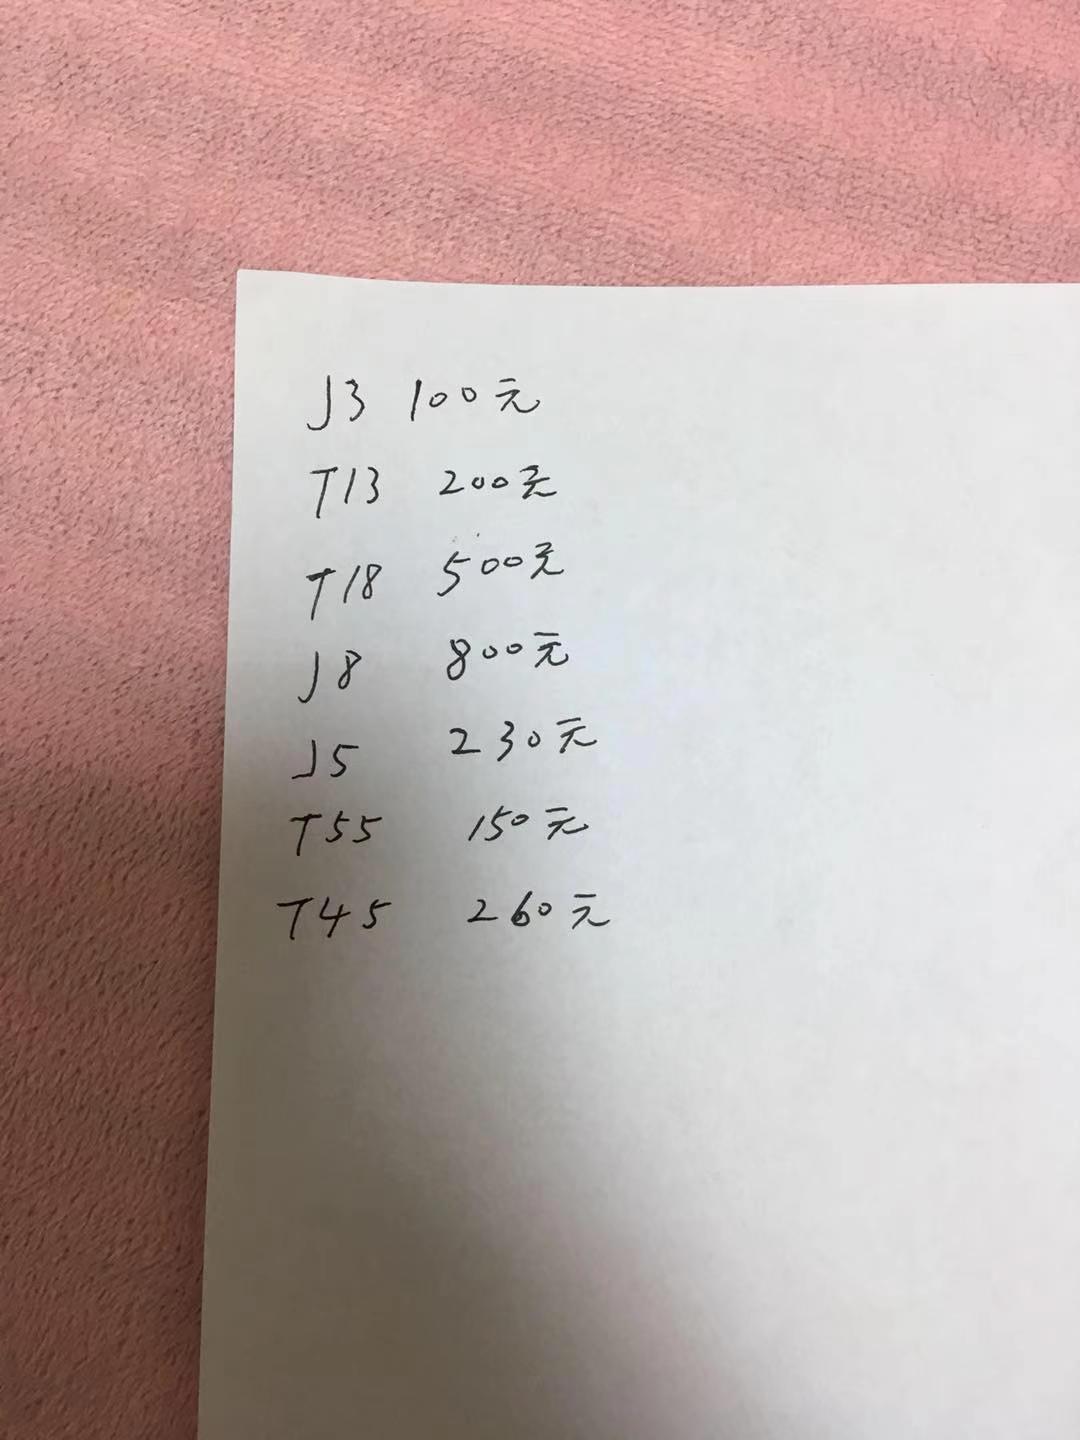 J3 100元
T13 200元
T18 500元
J8 800元
J5 230元
T55 150元
T45 260元